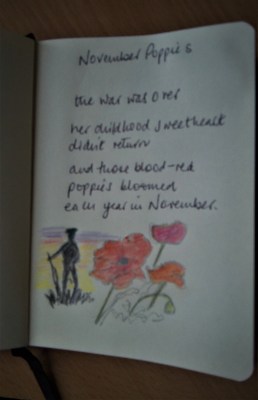 November Poppies
the war was over
her childhood sweetheart
didn't return
and those blood-red
poppies bloomed
each year in November.